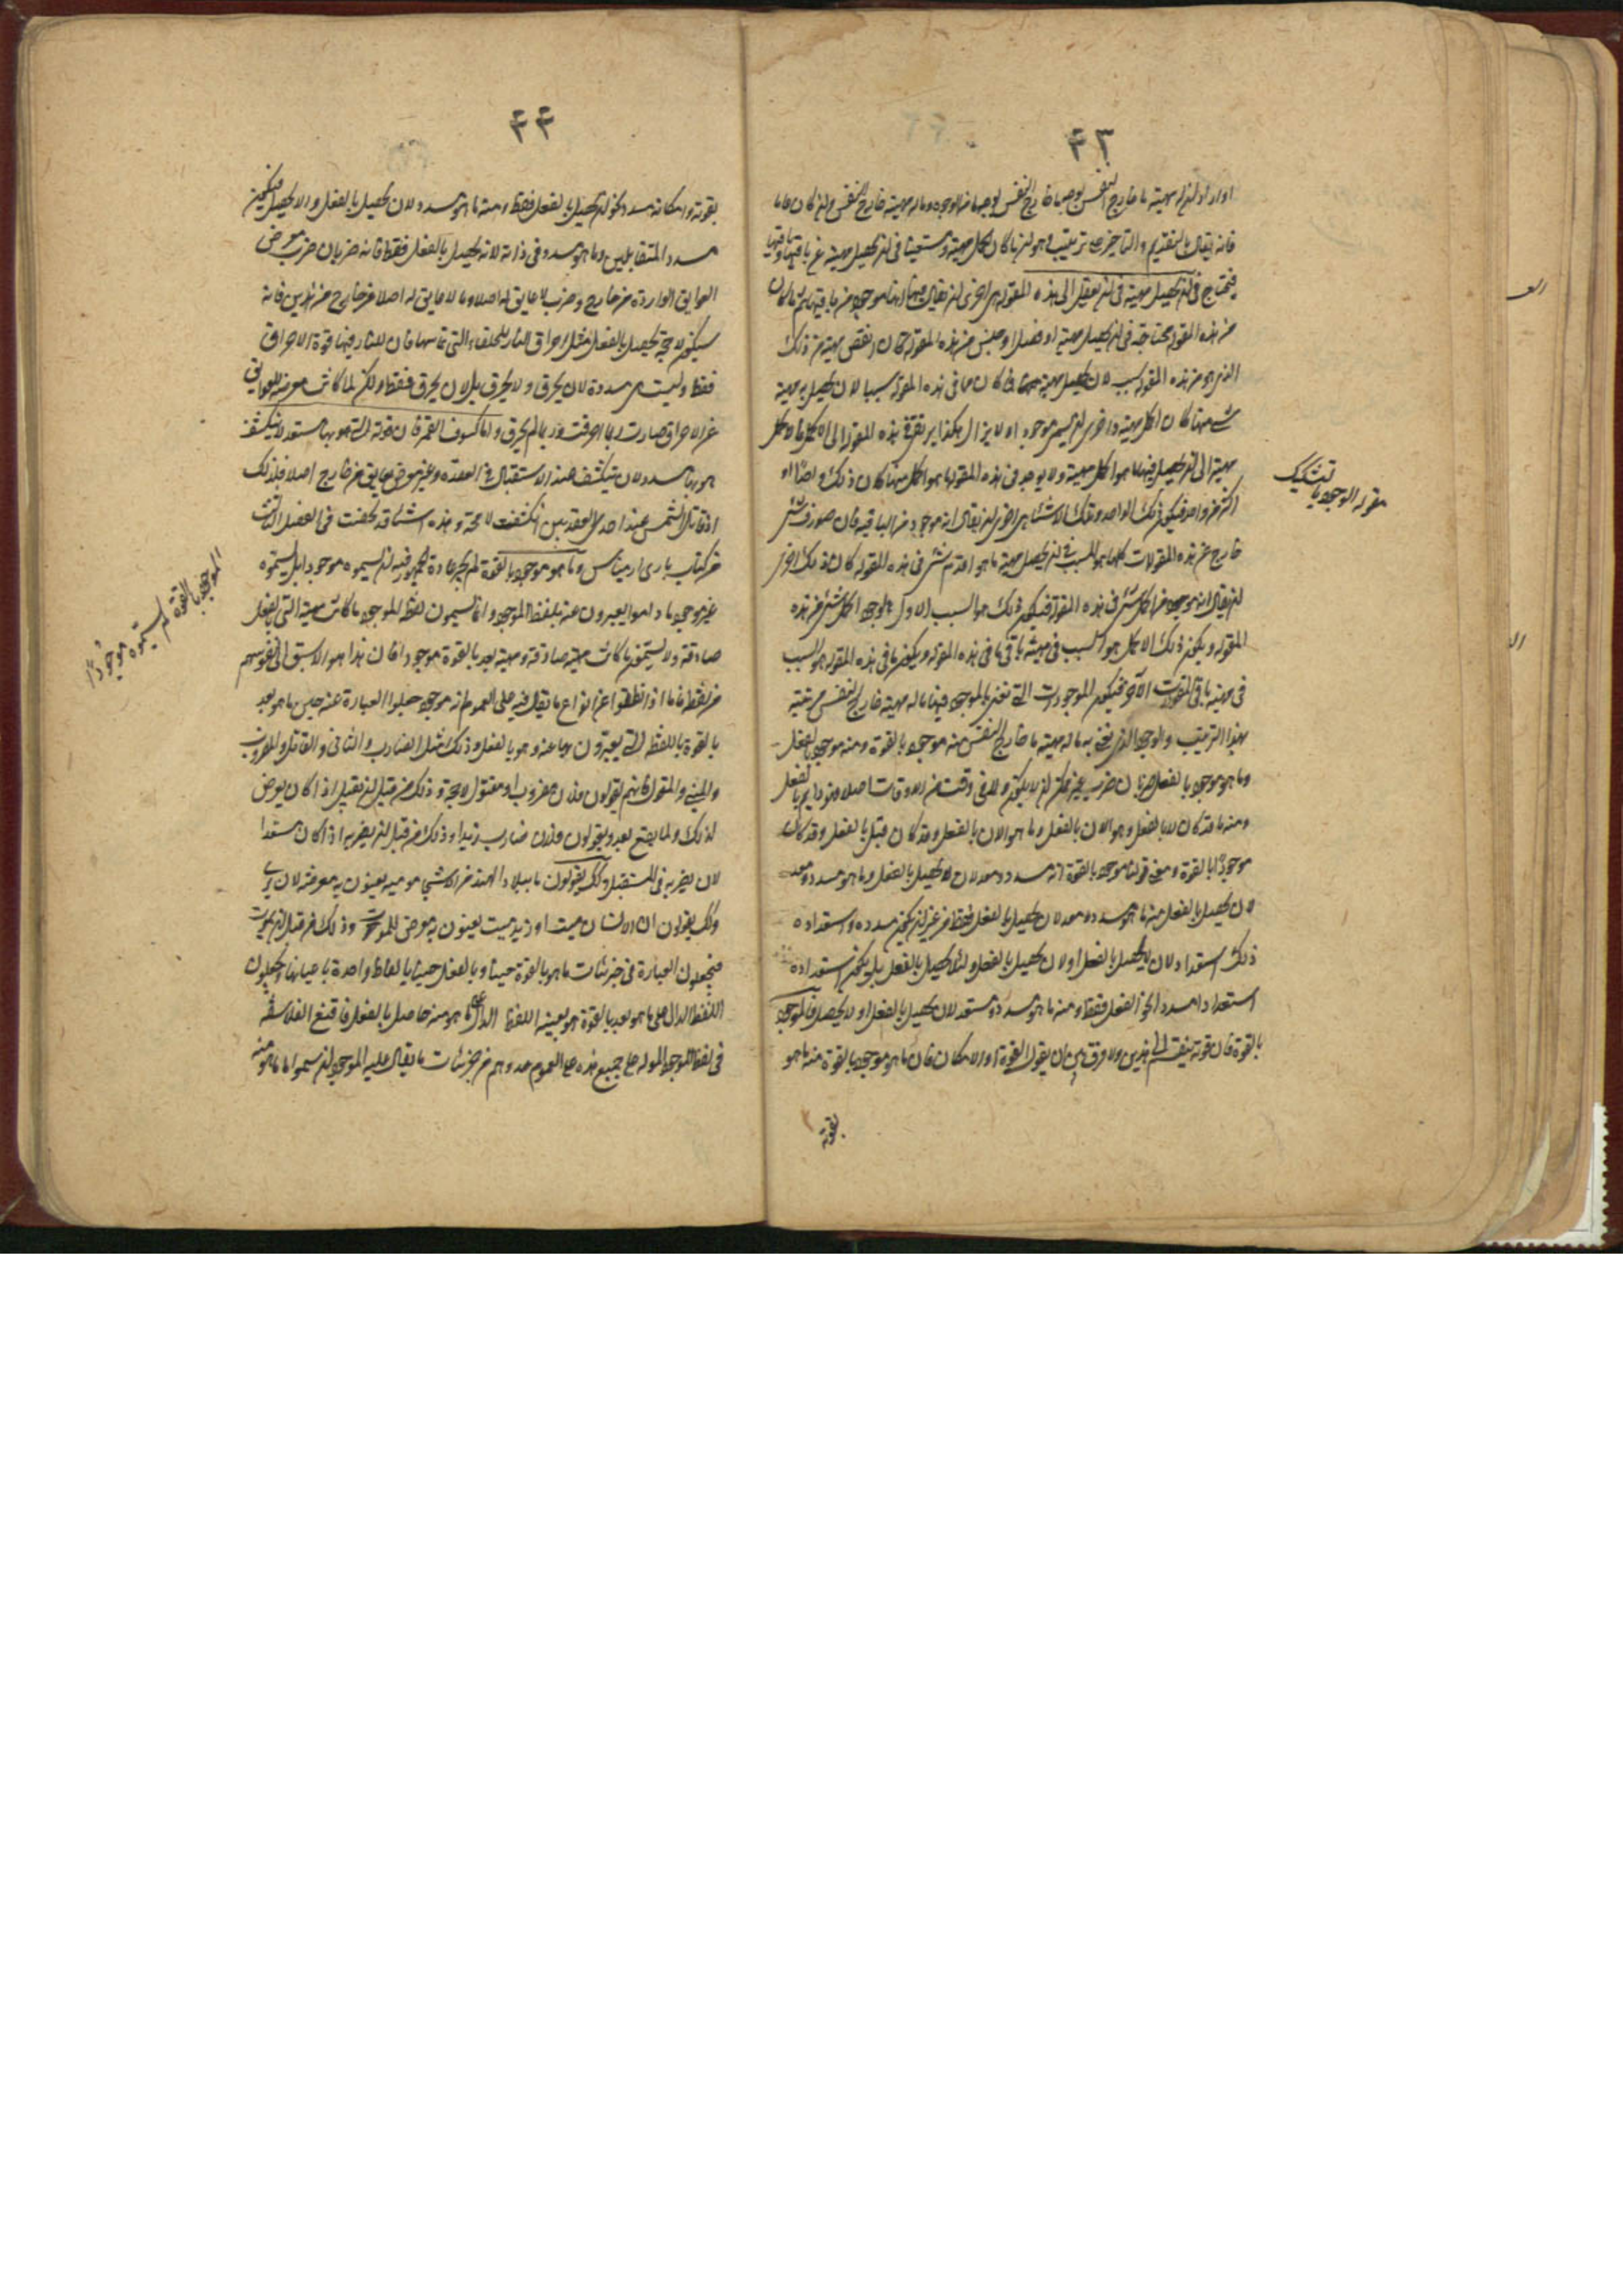 ٤٣
فانه يقال بالتقديم والتاخير على ترتيب وهو ان ما كان اكمل مهية ومستغنيا في ان يحصل مهية عن باقيها وباقيها
يحتاج في ان يحصل مهية في ان يعقل الى هذه المقولة هي احرى ان يقال فيها انها موجود من باقيها ثم ما كان
من هذه المقولة محتاجة في ان يحصل مهية او فصل او جنس من هذه المقولة كان انقص مهية من ذلك
الذي هو من هذه المقولة سبب لان يحصل مهية فما كان مما في هذه المقولة سببا لان يحصل به مهية
شيء منها كان اكمل مهية واحرى ان يسمى موجودا ولا يزال هكذا يرتقي في هذه المقولة الى الاكمل فالاكمل
مهية الى ان يحصل فيها ما هو اكمل مهية ولا يوجد في هذه المقولة ما هو اكمل منها كان ذلك واحدا او
اكثر من واحد فيكون ذلك الواحد وتلك الاشياء هي احرى ان يقال انه موجود من الباقية فان صودف شيء
خارج عن هذه المقولات كلها هو السبب في ان يحصل مهية ما هو اقدم شيء في هذه المقولة كان ذلك احرى
ان يقال انه موجود من كل شيء في هذه المقولة فيكون ذلك هو السبب الاول في وجود كل شيء من هذه
المقولة ويكون ذلك الاكمل هو السبب في مهية باقي ما في هذه المقولة ويكون ما في هذه المقولة هو السبب
في مهية باقي المقولات الاخر فتكون الموجودات التي نعني بالموجود فيها ما له مهية خارج النفس مرتبة
بهذا الترتيب والموجود الذي نعني به ما له مهية ما خارج النفس منه موجود بالقوة ومنه موجود بالفعل
وما هو موجود بالفعل ضربان ضرب غير ممكن ان لا يكون ولا في وقت من الاوقات اصلا فهو دايم بالفعل
ومنه ما قد كان لا بالفعل وهو الان بالفعل وما هو الان بالفعل وقد كان قبل بالفعل وقد كان
موجودا بالقوة ومعنى قولنا موجود بالقوة انه مسدد ومعد لان يحصل بالفعل وما هو مسدد ومعد
لان يحصل بالفعل منه ما هو مسدد ومعد لان يحصل بالفعل فقط من غير ان يكون سدده واستعداده
ذلك استعداد لان لا يحصل بالفعل او لان يحصل بالفعل ولئلا يحصل بالفعل بل يكون استعداده
استعدادا مسددا نحو الفعل فقط ومنه ما هو مسدد ومستعد لان يحصل بالفعل او لا يحصل فالموجود
بالقوة فان قوته ينقسم الى هذين ولا فرق بين ان يقول القوة او الامكان فان ما هو موجود بالقوة منه ما هو
بقوته
مقوله الوجود بالتشكيك
٤٤
بقوته وامكانه مسدد نحو ان يحصل بالفعل فقط ومنه ما هو مسدد لان يحصل بالفعل والا يحصل فيكون
مسدد المتقابلين وما هو مسدد في ذاته لانه يحصل بالفعل فقط فانه ضربان ضرب معرض
العوايق الواردة من خارج وضرب لا عايق له اصلا وما لا عايق له اصلا من خارج من هذين فانه
سيكون لا محة يحصل بالفعل مثل احراق النار للحلفاء التي تماسها فان للنار فيها قوة الاحراق
فقط وليست هي مسددة لان يحرق ولا يحرق بل لان يحرق فقط ولكن لما كانت معرضة للعوايق
عن الاحراق صارت ربما احرقت وربما لم يحرق واما كسوف القمر فان قوته التي هو بها مستعد لان ينكسف
هو بها مسدد لان ينكسف عند الاستقبال في العقدة وغير معرض لعايق من خارج اصلا فلذلك
اذا قابل الشمس عند احدى العقدتين انكسفت لا محة وهذه اشياء قد لخصت في الفصل الثالث
من كتاب باري ارميناس وما هو موجود بالقوة لم يجر عادة الجمهور فيه ان يسموه موجودا بل يسمونه
غير موجود ما داموا يعبرون عنه بلفظ الموجود وانما يسمون لفظ الموجود ما كانت مهية التي بالفعل
صادقة ولا يسمون ما كانت مهية صادقة ومهية بعد بالقوة موجودا فان هذا هو الاسبق الى نفوسهم
من لفظه فاما اذا نطقوا عن انواع ما يقال فيه على العموم انه موجود جعلوا العبارة عنه حين ما هو بعد
بالقوة باللفظة التي يعبرون بها عنه وهو بالفعل وذلك مثل الضارب والثاني والقاتل والمضروب
والمبني والمقتول فانهم يقولون فلان مضروب او مقتول لا محة وذلك من قبل ان يقتل اذا كان معرض
لذلك ولما يقع بعد ويقولون فلان ضارب زيدا وذلك من قبل ان يضربه اذا كان مستعدا
لان يضربه في المستقبل وكك يقولون ما ببلاد الهند من الاشجار مرئية يعنون به معرضة لان يرى
وكك يقولون ان الانسان ميت او زيد ميت يعنون به معرض للموت وذلك من قبل ان يموت
فيجعلون العبارة في جزئيات ما هو بالقوة حينا وبالفعل حينا بالفاظ واحدة باعيانها ويجعلون
اللفظ الدال على ما هو بعد بالقوة هو بعينه اللفظ الدال على ما هو منه حاصل بالفعل فاقتفى الفلاسفة
في لفظ الموجود الدال على جميع هذه على العموم حذوهم في جزئيات ما يقال عليه الموجود ان سموا ما هو منه
الموجود بالقوة لم يسموه موجودًا